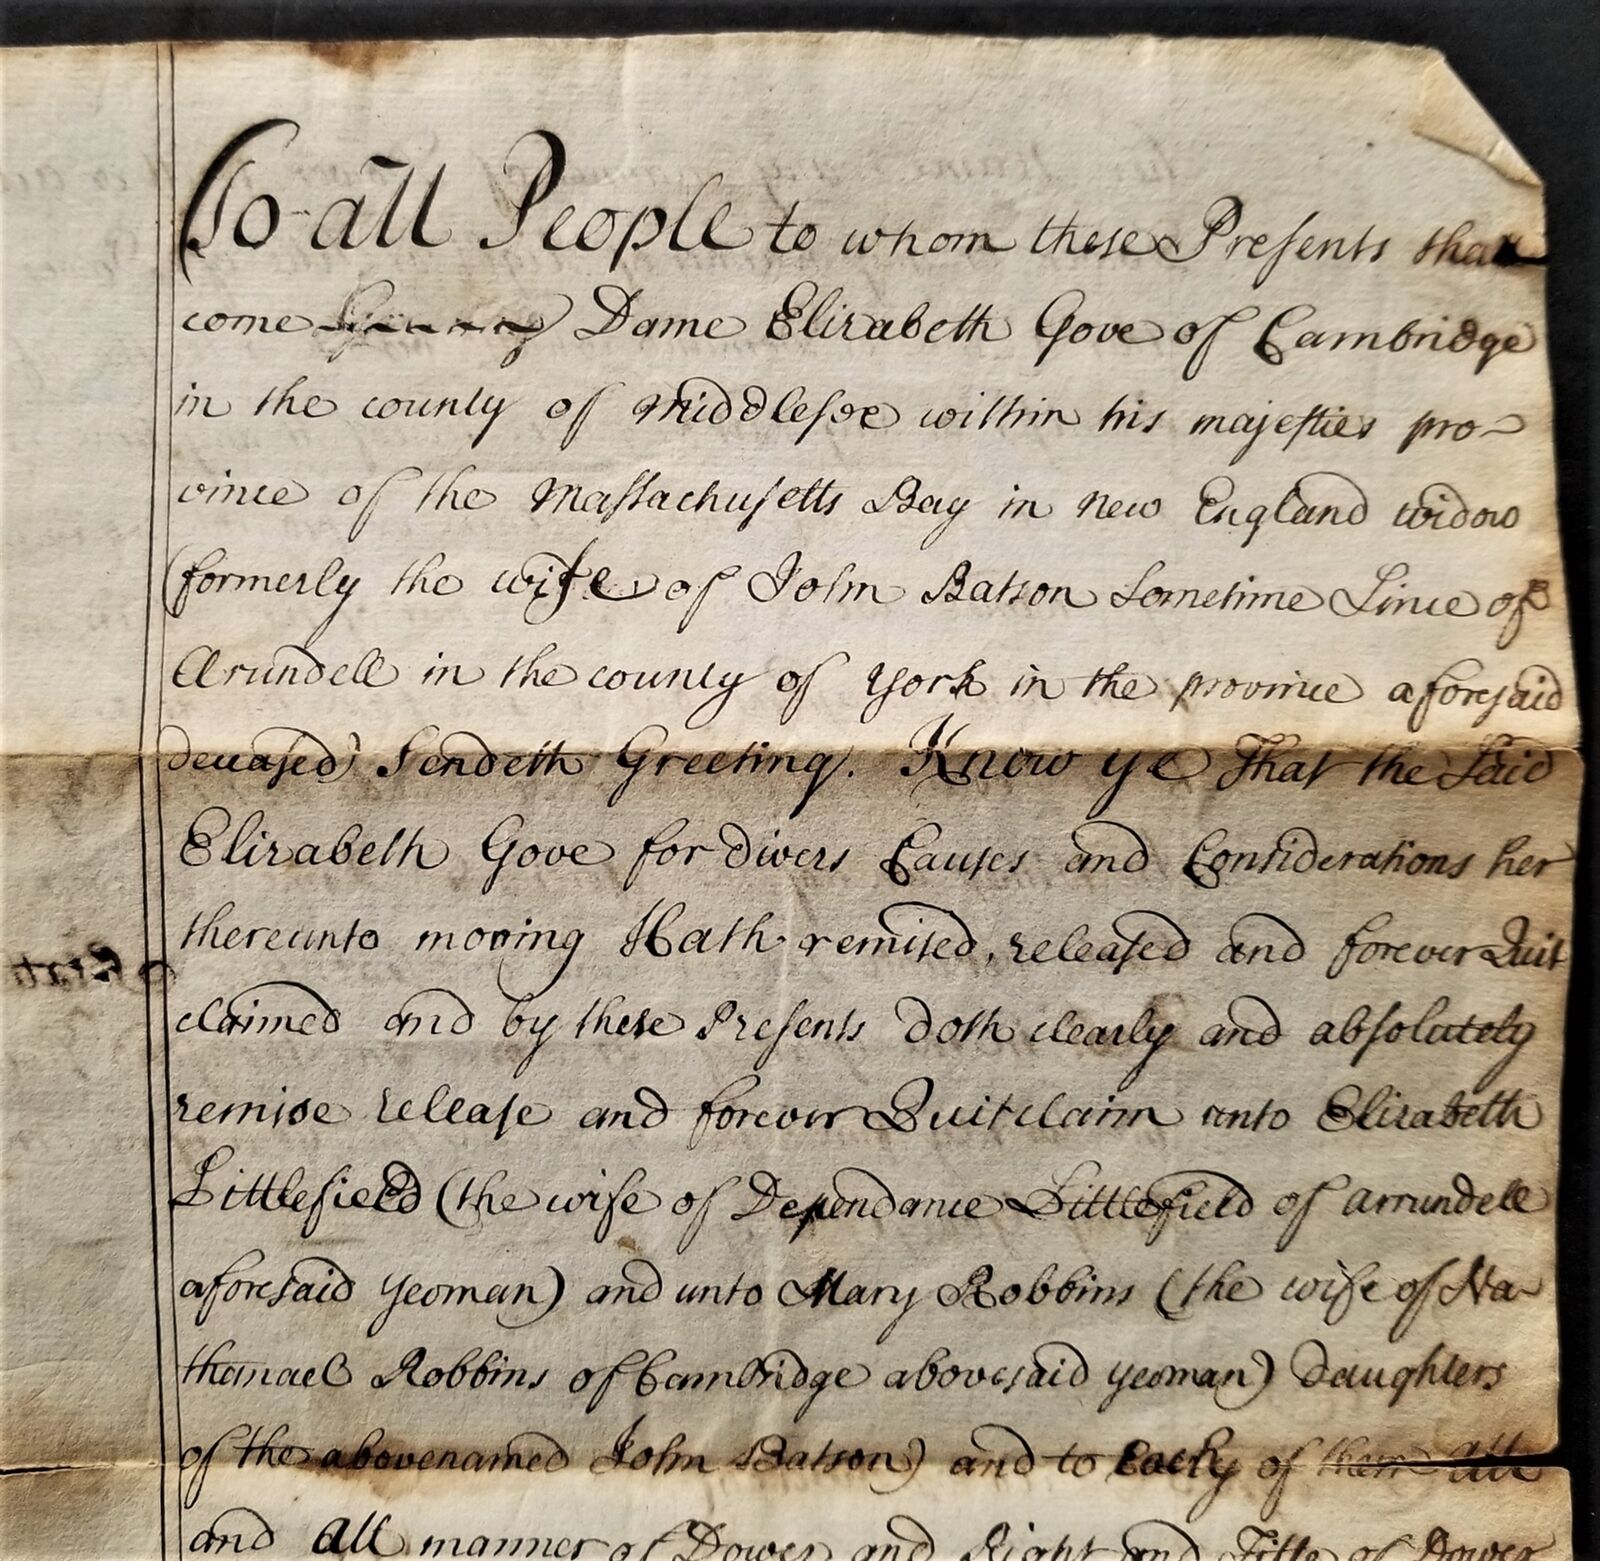 To all People to whom these Presents shall
come Dame Elizabeth Gove of Cambridge
in the county of Middlesex within his majesties pro-
vince of the Massachusetts Bay in New England widow
(formerly the wife of John Batson Sometime Since of
Arundell in the county of York in the province aforesaid
deceased) Sendeth Greeting. Know ye That the Said
Elizabeth Gove for divers Causes and Considerations her
thereunto moving Hath remised, released and forever Quit
claimed and by these Presents doth clearly and absolutely
remise release and forever Quitclaim unto Elizabeth
Littlefield (the wife of Dependance Littlefield of Arrundell
aforesaid yeoman) and unto Mary Robbins (the wife of Na-
thanael Robbins of Cambridge abovesaid yeoman) Daughters
of the abovenamed John Batson) and to Each of them All
and All manner of Dower and Right and Title of Dower